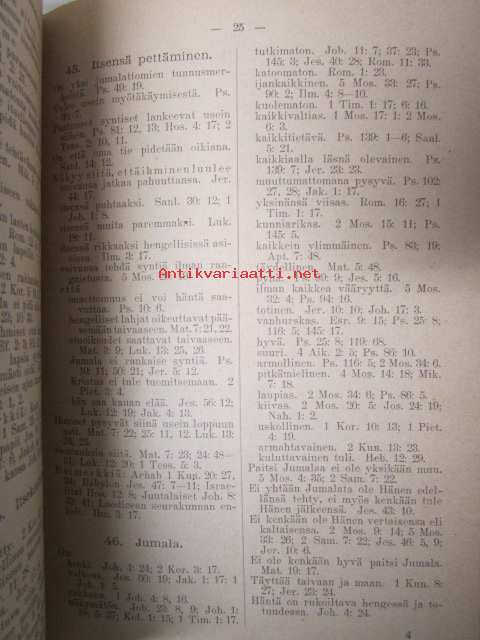 — 25 —
45. Itsensä pettäminen.
On yksi jumalattomien tunnusmer-
Ps. 49: 19.
myötäkäymisestä. Ps.
syntiset lankeevat usein
Ps. 81: 12, 13; Hos. 4: 17; 2
Tess. 2: 10, 11.
On että oma tie pidetään oikiana.
Sanl. 14: 12.
Näkyy siitä, että ihminen luulee
jatkaa pahuuttansa. Jer.
44: 17.
itsensä puhtaaksi. Sanl. 30: 12; 1
Joh. 1: 8.
itsensä muita paremmaksi. Luk.
18: 11.
itsensä rikkaaksi hengellisissä asi-
oissa. Ilm. 3: 17.
voivansa tehdä syntiä ilman ran-
gaistusta. 5 Mos.
että
onnettomuus ei voi häntä saa-
vuttaa. Ps. 10: 6.
hengelliset lahjat oikeuttavat pää-
semään taivaaseen. Mat. 7: 21, 22.
saattavat taivaaseen.
Mat. 3: 9; Luk. 13: 25, 26.
Jumala ei rankaise syntiä. Ps.
10: 11; 50: 21; Jer. 5: 12.
Kristus ei tule tuomitsemaan. 2
Piet. 3: 4.
hän saa kauan elää. Jes. 56: 12;
Luk. 12: 19; Jak. 4: 13.
pysyvät siinä usein loppuun
asti. Mat. 7: 22; 25: 11, 12. Luk. 13:
24, 25.
siitä. Mat. 7: 23; 24: 48—
51. Luk. 12: 20; 1 Tess. 5: 3.
Esimerkkiä: Ahab 1 Kun. 20: 27,
34; Babylon Jes. 47: 7—11; Israe-
liitat Hos. 12: 8; Juutalaiset Joh. 8:
33, 41; Laodicean seurakunnan en-
keli Ilm. 3: 17.
46. Jumala.
On
henki. Joh. 4: 24; 2 Kor. 3: 17.
valkeus. Jes. 60: 19; Jak. 1: 17; 1
Joh. 1: 5.
rakkaus. 1 Joh. 4: 8, 16.
näkymätön. Job. 23: 8, 9; Joh. 1:
18; 5: 37; Kol. 1: 15; 1 Tim. 1: 17.
tutkimaton. Job. 11: 7; 37: 23; Ps.
145: 3; Jes. 40: 28; Rom. 11: 33.
katoomaton. Rom. 1: 23.
ijankaikkinen. 5 Mos. 33: 27; Ps.
90: 2; Ilm. 4: 8—10.
kuolematon. 1 Tim. 1: 17; 6: 16.
kaikkivaltias. 1 Mos. 17: 1; 2 Mos.
6: 3.
kaikkitietävä. Ps. 139: 1—6; Sanl.
5: 21.
kaikkialla läsnä olevainen. Ps.
139: 7; Jer. 23: 23.
muuttumattomana pysyvä. Ps. 102:
27, 28; Jak. 1: 17.
yksinänsä viisas. Rom. 16: 27; 1
Tim. 1: 17.
kunniarikas. 2 Mos. 15: 11; Ps.
145: 5.
kaikkein ylimmäinen. Ps. 83: 19;
Apt. 7: 48.
täydellinen. Mat. 5: 48.
pyhä. Ps. 99: 9; Jes. 5: 16.
ilman kaikkea vääryyttä. 5 Mos.
32: 4; Ps. 94: 16.
totinen. Jer. 10: 10; Joh. 17: 3.
vanhurskas. Esr. 9: 15; Ps. 25: 8;
116: 5; 145: 17.
hyvä. Ps. 25: 8; 119: 68.
suuri. 4 Aik. 2: 5; Ps. 86: 10.
armollinen. Ps. 116: 5; 2 Mos. 34: 6.
pitkämielinen. 4 Mos. 14: 18; Mik.
7: 18.
laupias. 2 Mos. 34: 6; Ps. 86: 5.
kiivas. 2 Mos. 20: 5; Jos. 24: 19;
Nah. 1: 2.
uskollinen. 1 Kor. 10: 13; 1 Piet.
4: 19.
armahtavainen. 2 Kun. 13: 23.
kuluttavainen tuli. Heb. 12: 29.
Paitsi Jumalaa ei ole yksikään muu.
5 Mos. 4: 35; 2 Sam. 7: 22.
Ei yhtään Jumalata ole Hänen edel-
länsä tehty, ei myös kenkään tule
Hänen jälkeensä. Jes. 43: 10.
Ei kenkään ole Hänen vertaisensa eli
kaltaisensa. 2 Mos. 9: 14; 5 Mos.
33: 26; 2 Sam. 7: 22; Jes. 46: 5, 9;
Jer. 10: 6.
Ei ole kenkään hyvä paitsi Jumala.
Mat. 19: 17.
Täyttää taivaan ja maan. 1 Kun. 8:
27; Jer. 23: 24.
Häntä on rukoiltava hengessä ja to-
tuudessa. Joh. 4: 24.
4
Antikvariaatti.net